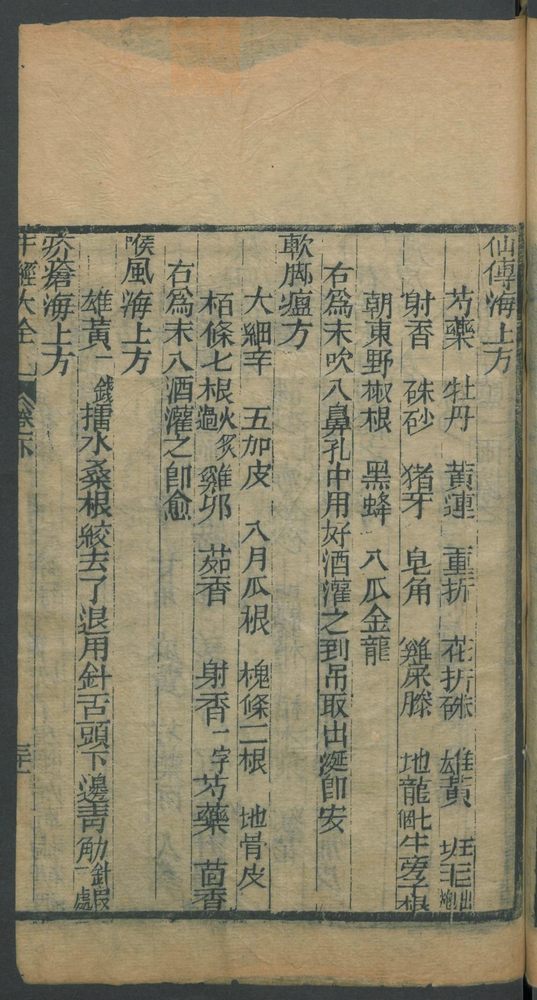 仙傳海上方
芍藥 牡丹 黃連 重折 花折硃 雄黃
射香 硃砂 猪牙 皂角 雞屎藤 地龍七個 牛旁子根
朝東野椒根 黑蜂 八瓜金龍
右為末吹入鼻孔中用好酒灌之到吊取出涎卽安
軟脚瘟方
大細辛 五加皮 八月瓜根 槐條二根 地骨皮
栢條七根火炙過 雞卵 茹香 射香一字 芍藥 茴香
右為末入酒灌之卽愈
喉風海上方
雄黃一錢擂水桑根絞去了退用針舌頭下邊青觔針一處
疥瘡海上方
牛經大全